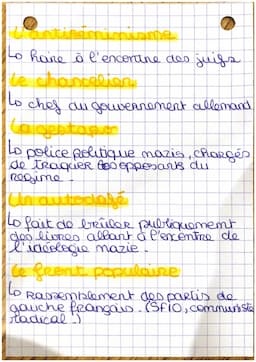 L'antiséminisme
↳ haine à l'encontre des juifs
Le chancelier
↳ chef du gouvernement allemand
La gestapo
↳ police politique nazis, chargés
de traquer les opposants du
régime.
Un autodafé
↳ fait de brûler publiquement
des livres allant à l'encontre de
l'idéologie nazie.
Le front populaire
↳ rassemblement des partis de
gauche français. (SFIO, communiste
radical.)